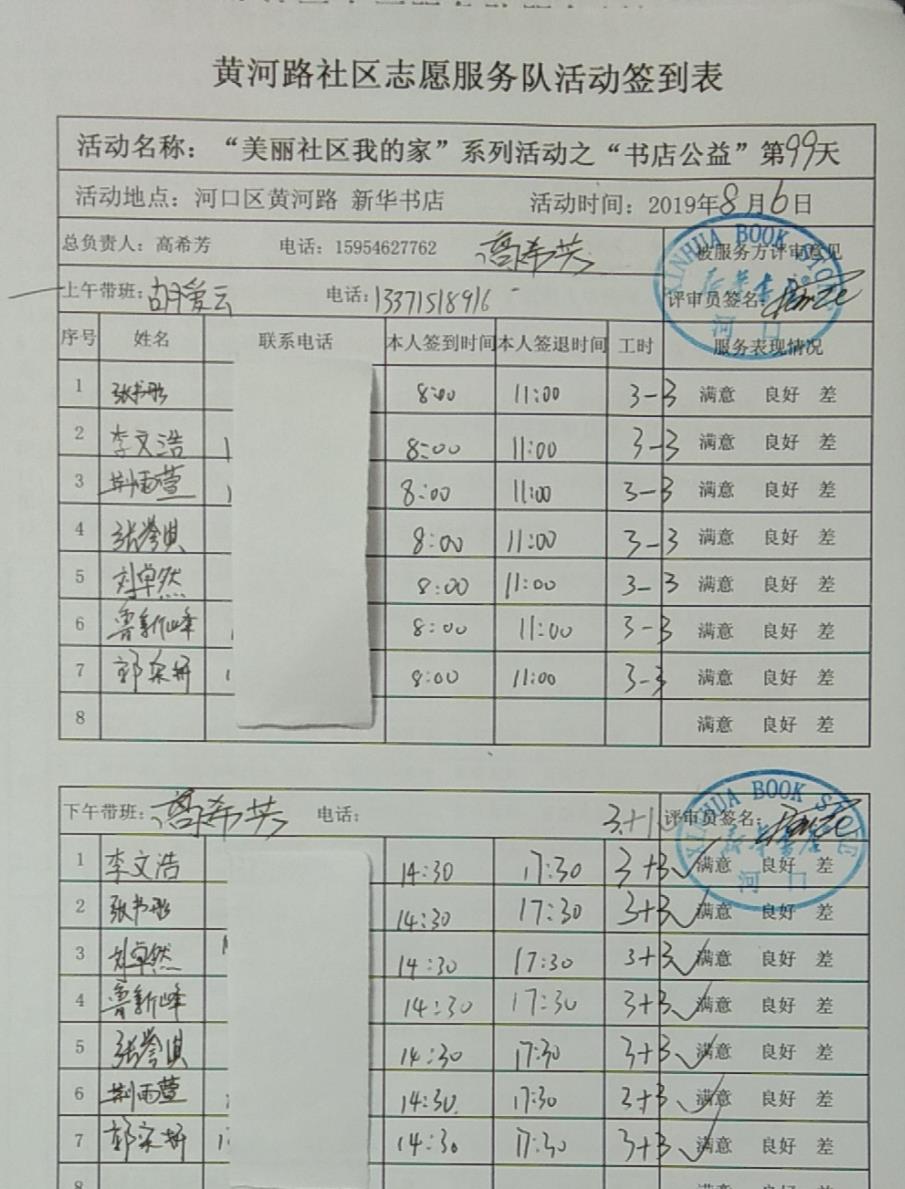 黄河路社区志愿服务队活动签到表
活动名称：“美丽社区我的家”系列活动之“书店公益”第99天
活动地点：河口区黄河路 新华书店 活动时间：2019年8月6日
总负责人：高希芳 电话：15954627762 高希芳 被服务方评审意见
上午带班：胡爱云 电话：13371518916 评审员签名：
XINHUA BOOK STORE
新华书店
河口
序号 姓名 联系电话 本人签到时间 本人签退时间 工时 服务表现情况
1 张书彤 8:00 11:00 3-3 满意 良好 差
2 李文浩 8:00 11:00 3-3 满意 良好 差
3 荆雨萱 8:00 11:00 3-3 满意 良好 差
4 张誉淇 8:00 11:00 3-3 满意 良好 差
5 刘卓然 8:00 11:00 3-3 满意 良好 差
6 鲁新峰 8:00 11:00 3-3 满意 良好 差
7 郭梁妍 8:00 11:00 3-3 满意 良好 差
8 满意 良好 差
下午带班：高希芳 电话： 3+1 评审员签名：
XINHUA BOOK STORE
新华书店
河口
1 李文浩 14:30 17:30 3+3 满意 良好 差
2 张书彤 14:30 17:30 3+3 满意 良好 差
3 刘卓然 14:30 17:30 3+3 满意 良好 差
4 鲁新峰 14:30 17:30 3+3 满意 良好 差
5 张誉淇 14:30 17:30 3+3 满意 良好 差
6 荆雨萱 14:30 17:30 3+3 满意 良好 差
7 郭梁妍 14:30 17:30 3+3 满意 良好 差
8